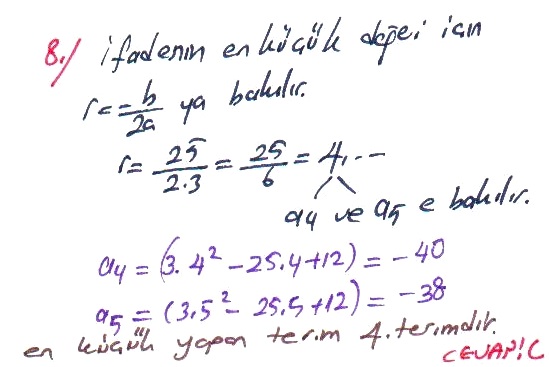 8./ ifadenin en küçük değei için
r = -b/2a ya bakılır.
r = 25/2.3 = 25/6 = 4,...
a4 ve a5 e bakılır.
a4 = (3.4² - 25.4 + 12) = -40
a5 = (3.5² - 25.5 + 12) = -38
en küçük yapan terim 4. terimdir.
CEVAP: C